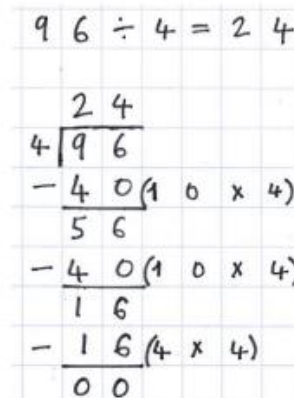 96 ÷ 4 = 24
24
4 96
- 40 (10 x 4)
56
- 40 (10 x 4)
16
- 16 (4 x 4)
00